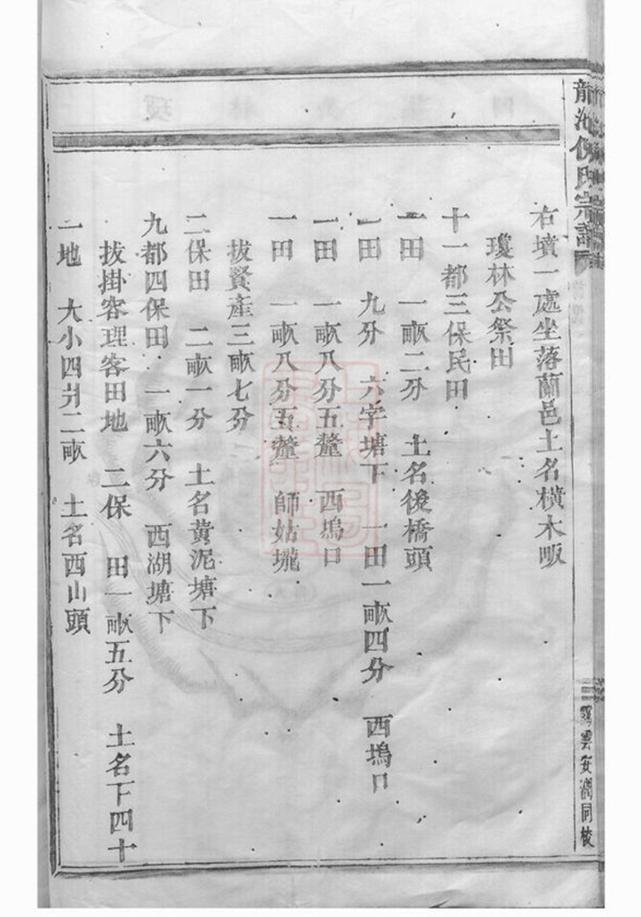 龍池倪氏宗譜
右墳一處坐落蘭邑土名橫木畈
瓊林公祭田
十一都三保民田
一田 一畝二分 土名後橋頭
一田 九分 六字塘下 一田一畝四分 西塢口
一田 一畝八分五釐 西塢口
一田 一畝八分五釐 師姑壠
拔賢產三畝七分
二保田 二畝一分 土名黃泥塘下
九都四保田 一畝六分 西湖塘下
拔掛客理客田地 二保 田一畝五分 土名下四十
一地 大小四爿二畝 土名西山頭
雲安 同校